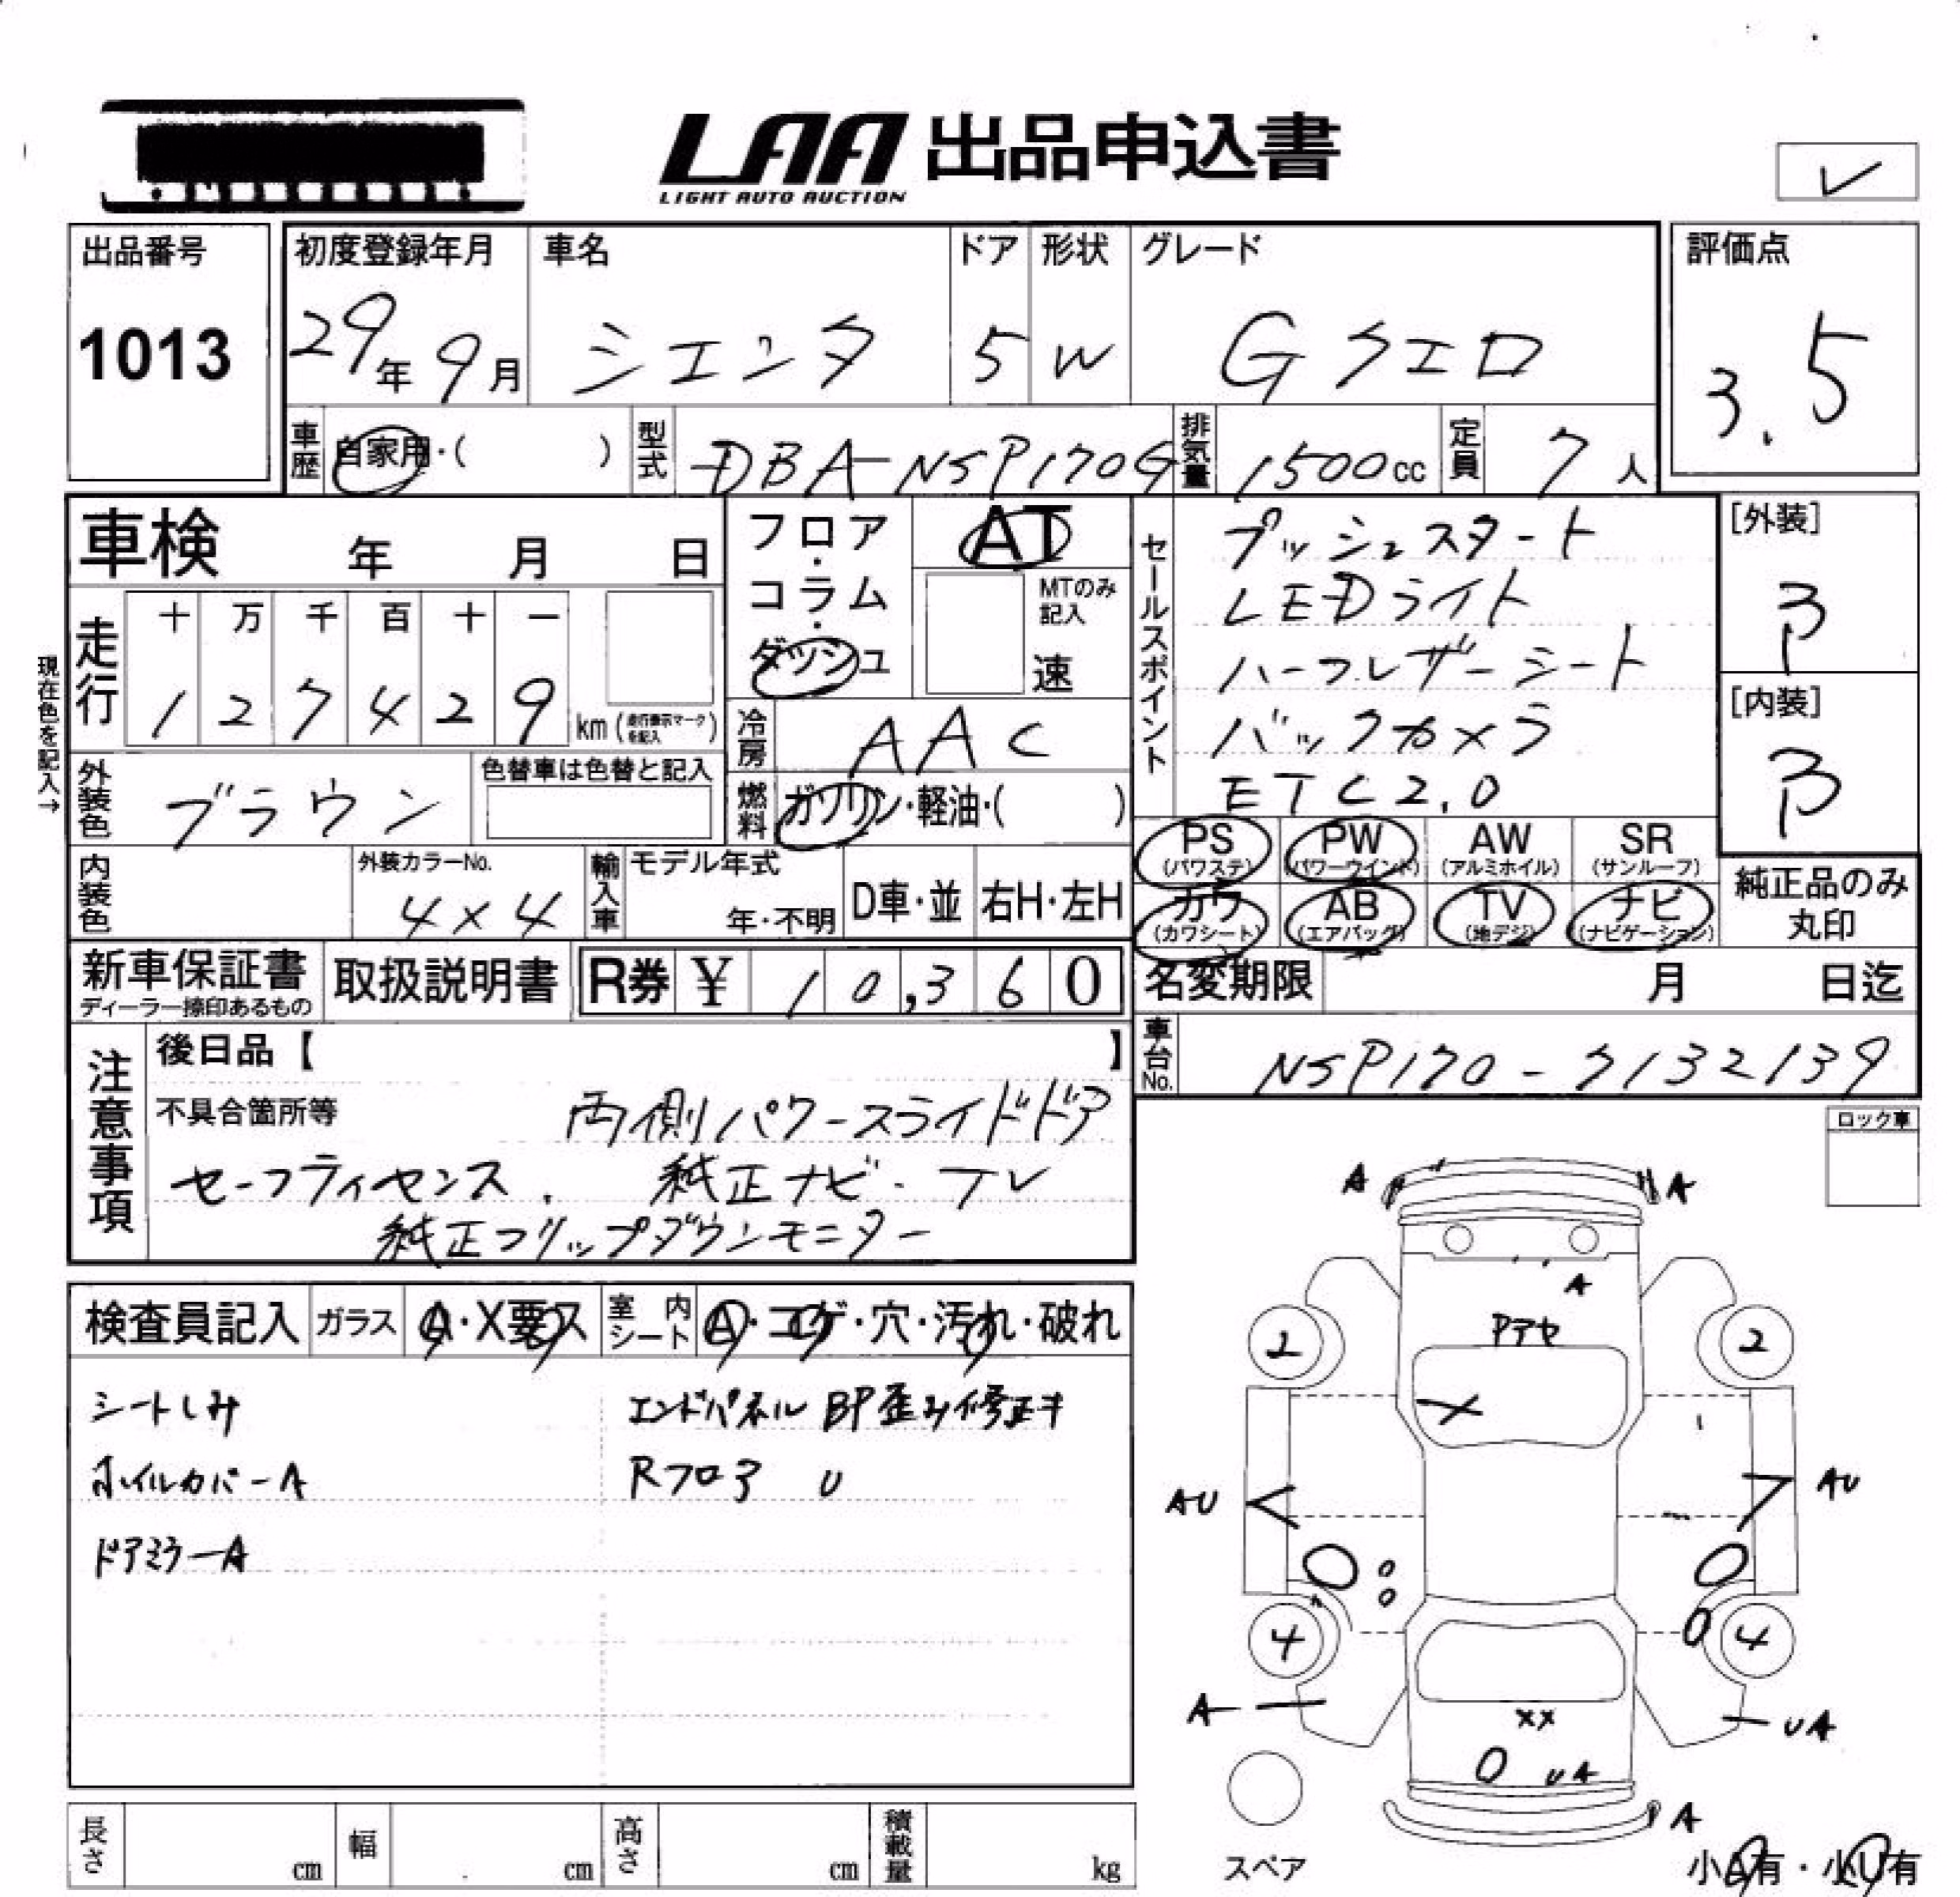 LAA 出品申込書
LIGHT AUTO AUCTION
出品番号
1013
初度登録年月
29年 9月
車名
シエンタ
ドア
5
形状
W
グレード
G クエロ
評価点
3.5
車歴 自家用・( )
型式 DBA-NSP170G
排気量 1500cc
定員 7人
車検 年 月 日
フロア・コラム・ダッシュ
AT
MTのみ記入
速
セールスポイント
プッシュスタート
LEDライト
ハーフレザーシート
バックカメラ
ETC2.0
[外装]
B
[内装]
B
現在色を記入→
走行
十 万 千 百 十 一
1 2 7 4 2 9 km (走行表示マークを記入)
冷房 AAC
外装色 ブラウン
色替車は色替と記入
燃料 ガソリン・軽油・( )
PS (パワステ)
PW (パワーウインド)
AW (アルミホイル)
SR (サンルーフ)
カワ (カワシート)
AB (エアバッグ)
TV (地デジ)
ナビ (ナビゲーション)
純正品のみ丸印
内装色
外装カラーNo.
4×4
輸入車
モデル年式
年・不明
D車・並
右H・左H
新車保証書
ディーラー捺印あるもの
取扱説明書
R券 ¥ 10,360
名変期限 月 日迄
車台No. NSP170-7132139
注意事項
後日品【 】
不具合箇所等
両側パワースライドドア
セーフティセンス. 純正ナビ・TV
純正フリップダウンモニター
ロック車
検査員記入
ガラス A・X要ス
室内シート A・コゲ・穴・汚れ・破れ
シートしみ
ホイルカバーA
ドアミラーA
エンドパネル BP歪み修正キ
Rフロア U
A
A
A
Pアセ
2
2
X
AU
AU
4
4
A
UA
XX
UA
A
スペア
小A有・小U有
長さ cm
幅 cm
高さ cm
積載量 kg